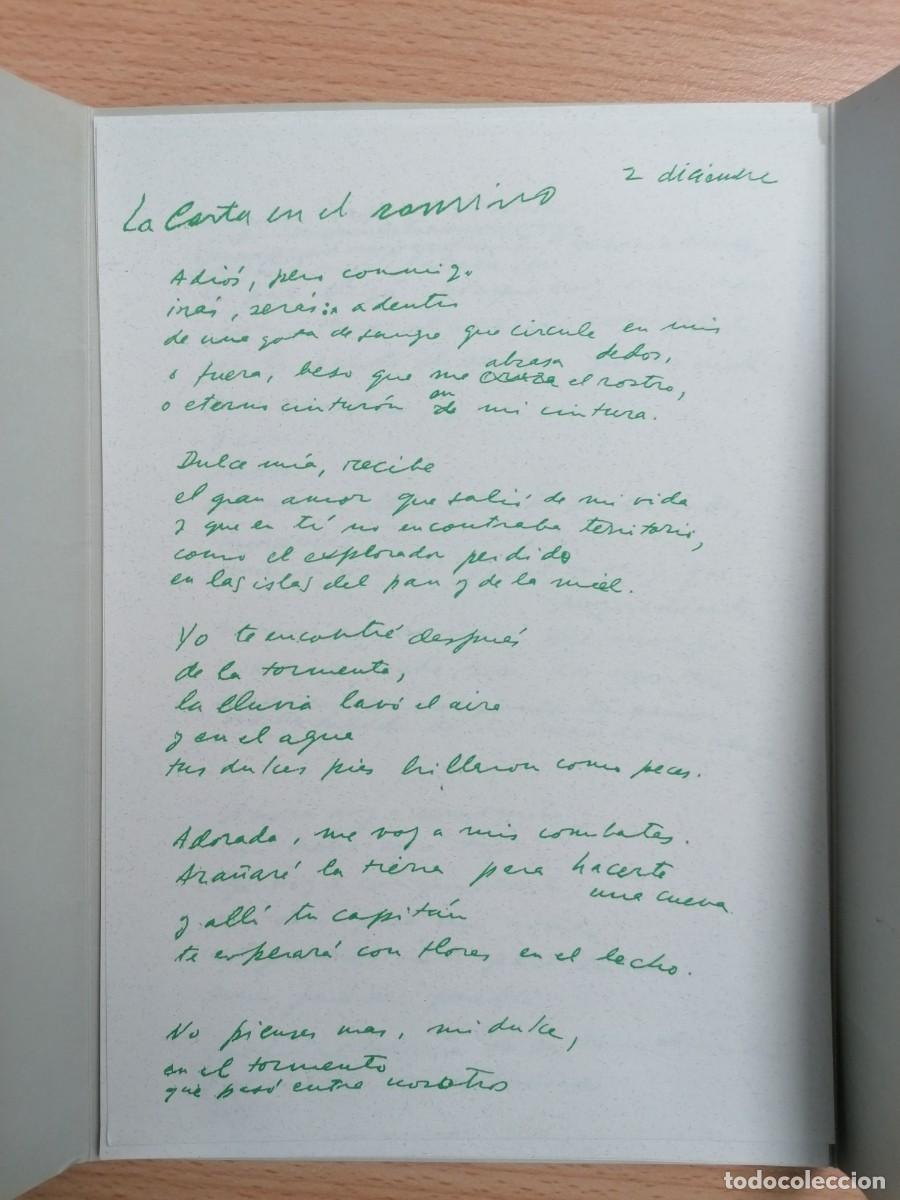 2 diciembre
La Carta en el camino
Adiós, pero conmigo
irás, serás: adentro
de una gota de sangre que circule en mis
dedos,
o fuera, beso que me abrasa el rostro,
o eterno cinturón en mi cintura.
Dulce mía, recibe
el gran amor que salió de mi vida
y que en tí no encontraba territorio,
como el explorador perdido
en las islas del pan y de la miel.
Yo te encontré después
de la tormenta,
la lluvia lavó el aire
y en el agua
tus dulces pies brillaron como peces.
Adorada, me voy a mis combates.
Arañaré la tierra para hacerte
una cueva
y allí tu capitán
te esperará con flores en el lecho.
No pienses mas, mi dulce,
en el tormento
que pasó entre nosotros
todocoleccion